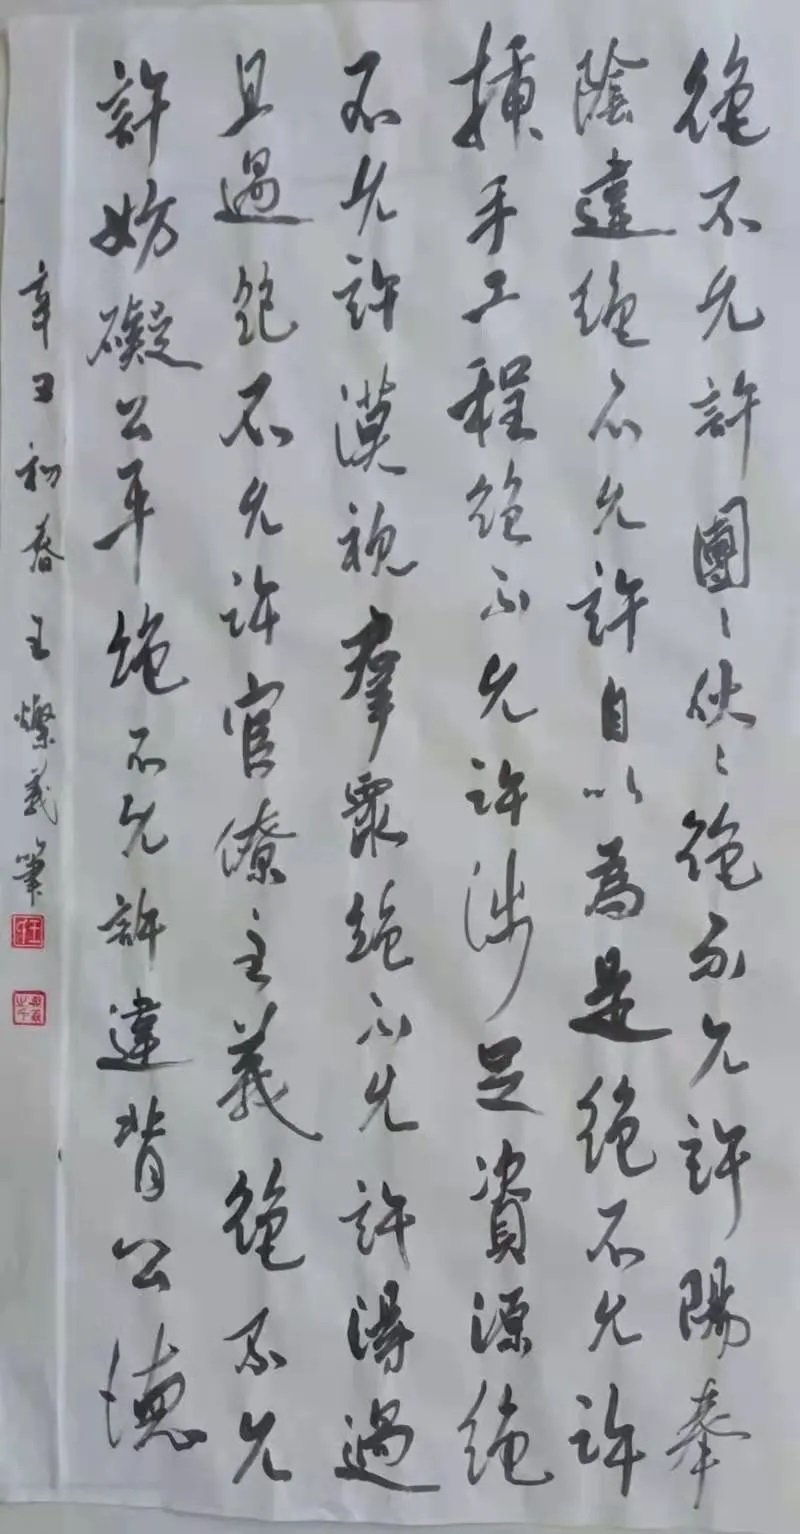 絶不允許團〻伙〻絶不允許陽奉
陰違絶不允許自以為是絶不允許
插手工程絶不允許涉足資源絶
不允許漠視羣眾絶不允許得過
且過絶不允許官僚主義絶不允
許妨礙公平絶不允許違背公德
辛丑初春王燦義筆
王